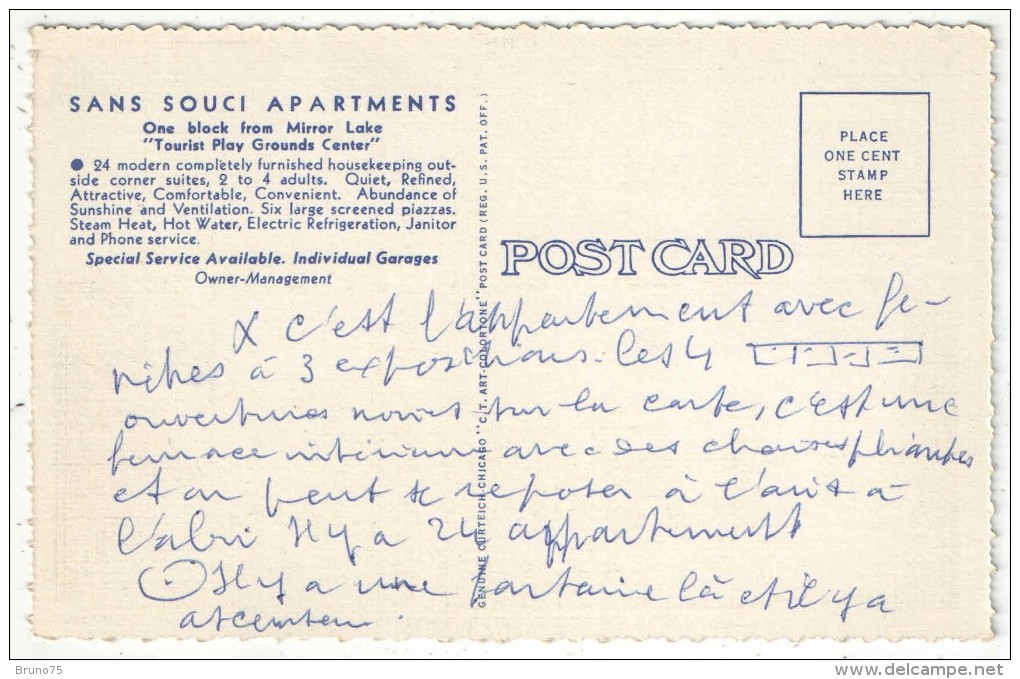 SANS SOUCI APARTMENTS
One block from Mirror Lake
"Tourist Play Grounds Center"
● 24 modern completely furnished housekeeping out-
side corner suites, 2 to 4 adults. Quiet, Refined,
Attractive, Comfortable, Convenient. Abundance of
Sunshine and Ventilation. Six large screened piazzas.
Steam Heat, Hot Water, Electric Refrigeration, Janitor
and Phone service.
Special Service Available. Individual Garages
Owner-Management
GENUINE CURTEICH-CHICAGO "C.T. ART-COLORTONE" POST CARD (REG. U.S. PAT. OFF.)
PLACE
ONE CENT
STAMP
HERE
POST CARD
X c'est l'appartement avec fe-
nêtres à 3 expositions. les 4
ouvertures noires sur la carte, c'est une
terrasse intérieure avec des chaises pliantes
et on peut se reposer à l'air à
l'abri Il y a 24 appartements
Il y a une fontaine là et il y a
ascenseur.
Bruno75
www.delcampe.net